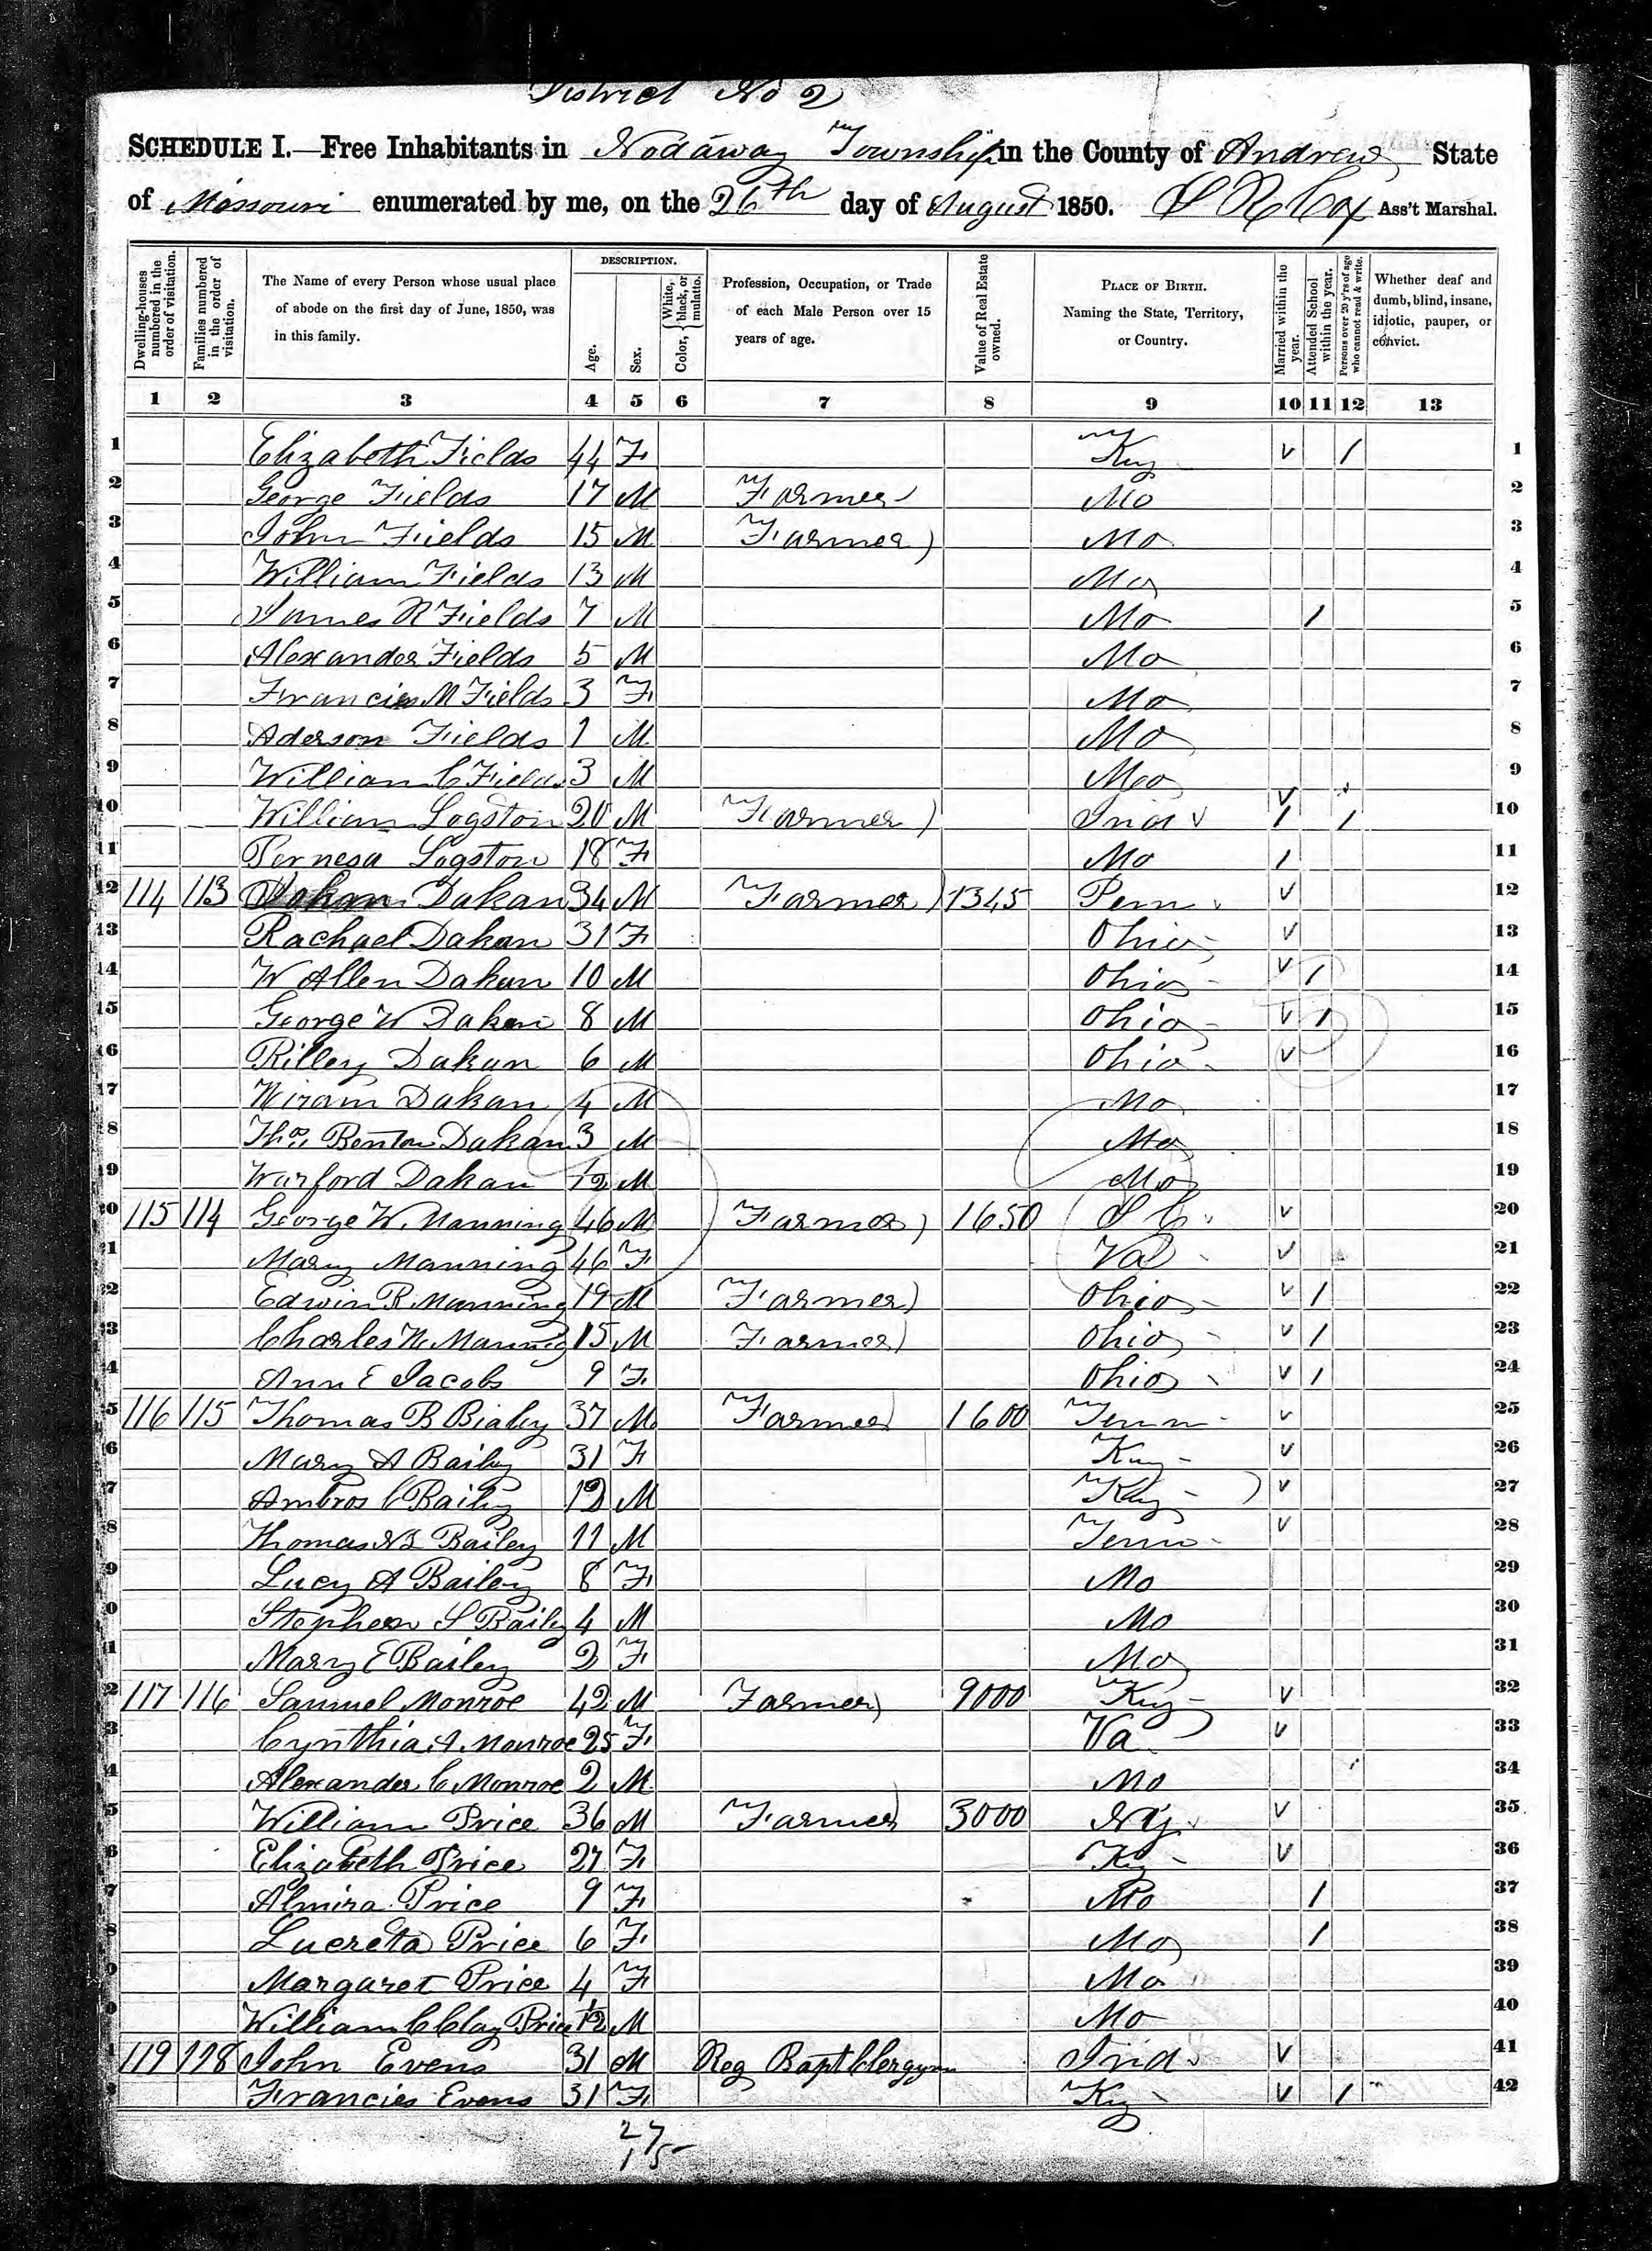 District No 2
SCHEDULE I.—Free Inhabitants in Nodaway Township in the County of Andrew State
of Missouri enumerated by me, on the 26th day of August 1850. S R Cox Ass't Marshal.
Dwelling-houses numbered in the order of visitation.
Families numbered in the order of visitation.
The Name of every Person whose usual place of abode on the first day of June, 1850, was in this family.
DESCRIPTION.
Age.
Sex.
Color, { White, black, or mulatto.
Profession, Occupation, or Trade of each Male Person over 15 years of age.
Value of Real Estate owned.
PLACE OF BIRTH. Naming the State, Territory, or Country.
Married within the year.
Attended School within the year.
Persons over 20 y'rs of age who cannot read & write.
Whether deaf and dumb, blind, insane, idiotic, pauper, or convict.
1 2 3 4 5 6 7 8 9 10 11 12 13
1 Elizabeth Fields 44 F Ky v / 1
2 George Fields 17 M Farmer Mo 2
3 John Fields 15 M Farmer Mo 3
4 William Fields 13 M Mo 4
5 James R Fields 7 M Mo / 5
6 Alexander Fields 5 M Mo 6
7 Francies M Fields 3 F Mo 7
8 Aderson Fields 1 M Mo 8
9 William C Fields 3 M Mo 9
10 William Logston 20 M Farmer Ind v v / / 10
11 Pernesa Logston 18 F Mo / 11
12 114 113 Dakan 34 M Farmer 1345 Penn v 12
13 Rachael Dakan 31 F Ohio v 13
14 W Allen Dakan 10 M Ohio v / 14
15 George W Dakan 8 M Ohio v / 15
16 Rilley Dakan 6 M Ohio v 16
17 Hiram Dakan 4 M Mo 17
18 Thos Benton Dakan 3 M Mo 18
19 Warford Dakan 1/12 M Mo 19
20 115 114 George W. Manning 46 M Farmer 1650 S C v 20
21 Mary Manning 46 F Va v 21
22 Edwin R Manning 19 M Farmer Ohio v / 22
23 Charles W Manning 15 M Farmer Ohio v / 23
24 Ann E Jacobs 9 F Ohio v / 24
25 116 115 Thomas B Bialey 37 M Farmer 1600 Tenn v 25
26 Mary A Baily 31 F Ky v 26
27 Ambros C Baily 12 M Ky v 27
28 Thomas Bailey 11 M Tenn v 28
29 Lucy A Bailey 8 F Mo 29
30 Stephen S Baily 4 M Mo 30
31 Mary E Bailey 2 F Mo 31
32 117 116 Samuel Monroe 42 M Farmer 9000 Ky v 32
33 Cynthia A. Monroe 25 F Va v 33
34 Alexander C Monroe 2 M Mo 34
35 William Price 36 M Farmer 3000 NY v 35
36 Elizabeth Price 27 F Ky v 36
37 Almira Price 9 F Mo / 37
38 Lucreta Price 6 F Mo / 38
39 Margaret Price 4 F Mo 39
40 William C Clay Price 1/12 M Mo 40
41 119 118 John Evens 31 M Reg Bapt Clergym Ind v 41
42 Francies Evens 31 F Ky v / 42
27
15